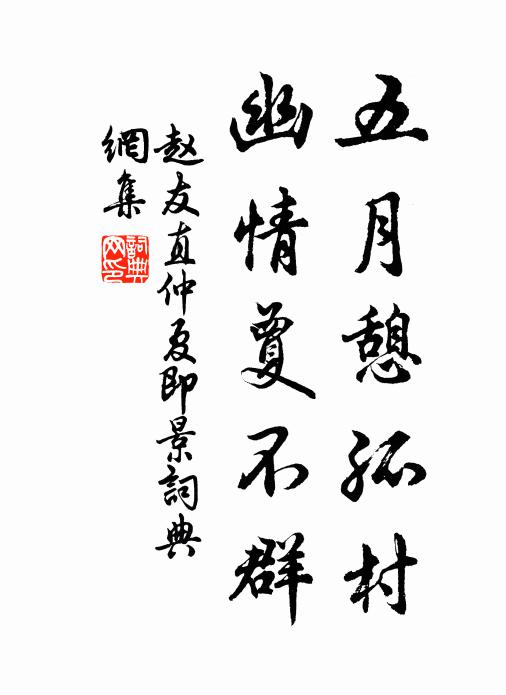 五月憩孤村
幽情夐不群
赵友直仲夏即景詞典
網集
詞典
网印